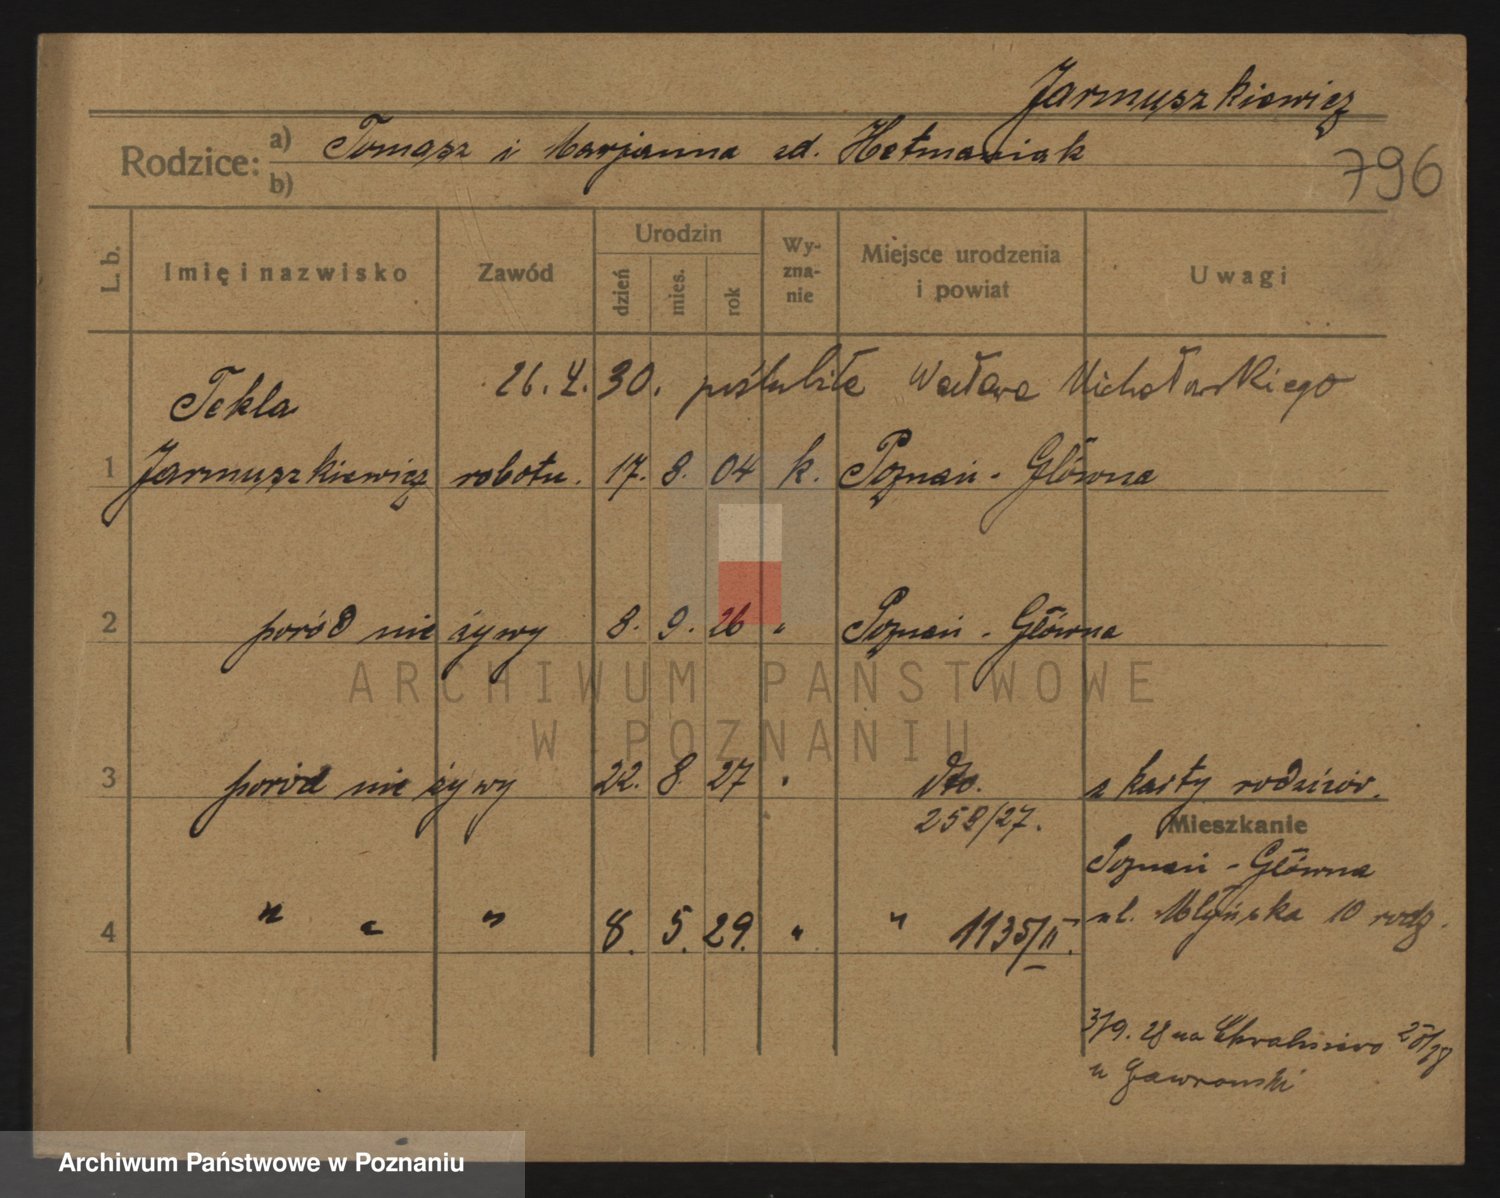 Jarmuszkiewicz
Rodzice: a) Tomasz i Marjanna zd. Hetmaniak
b)
796
L. b.
Imię i nazwisko
Zawód
Urodzin
dzień
mies.
rok
Wy-
zna-
nie
Miejsce urodzenia
i powiat
Uwagi
26. 4. 30. poślubiła Wacława Michalarskiego
Tekla
1 Jarmuszkiewicz robotn. 17. 8. 04 k. Poznań - Główna
2 poród nie żywy 8. 9. 26 " Poznań - Główna
3 poród nie żywy 22. 8. 27 " dto. z karty rodziców.
258/27.
Mieszkanie
Poznań - Główna
ul. Młyńska 10 rodz.
4 " " " 8. 5. 29. " " 1135/II.
3/9. 28 na 25/
u Gawronski
ARCHIWUM PAŃSTWOWE
W POZNANIU
Archiwum Państwowe w Poznaniu